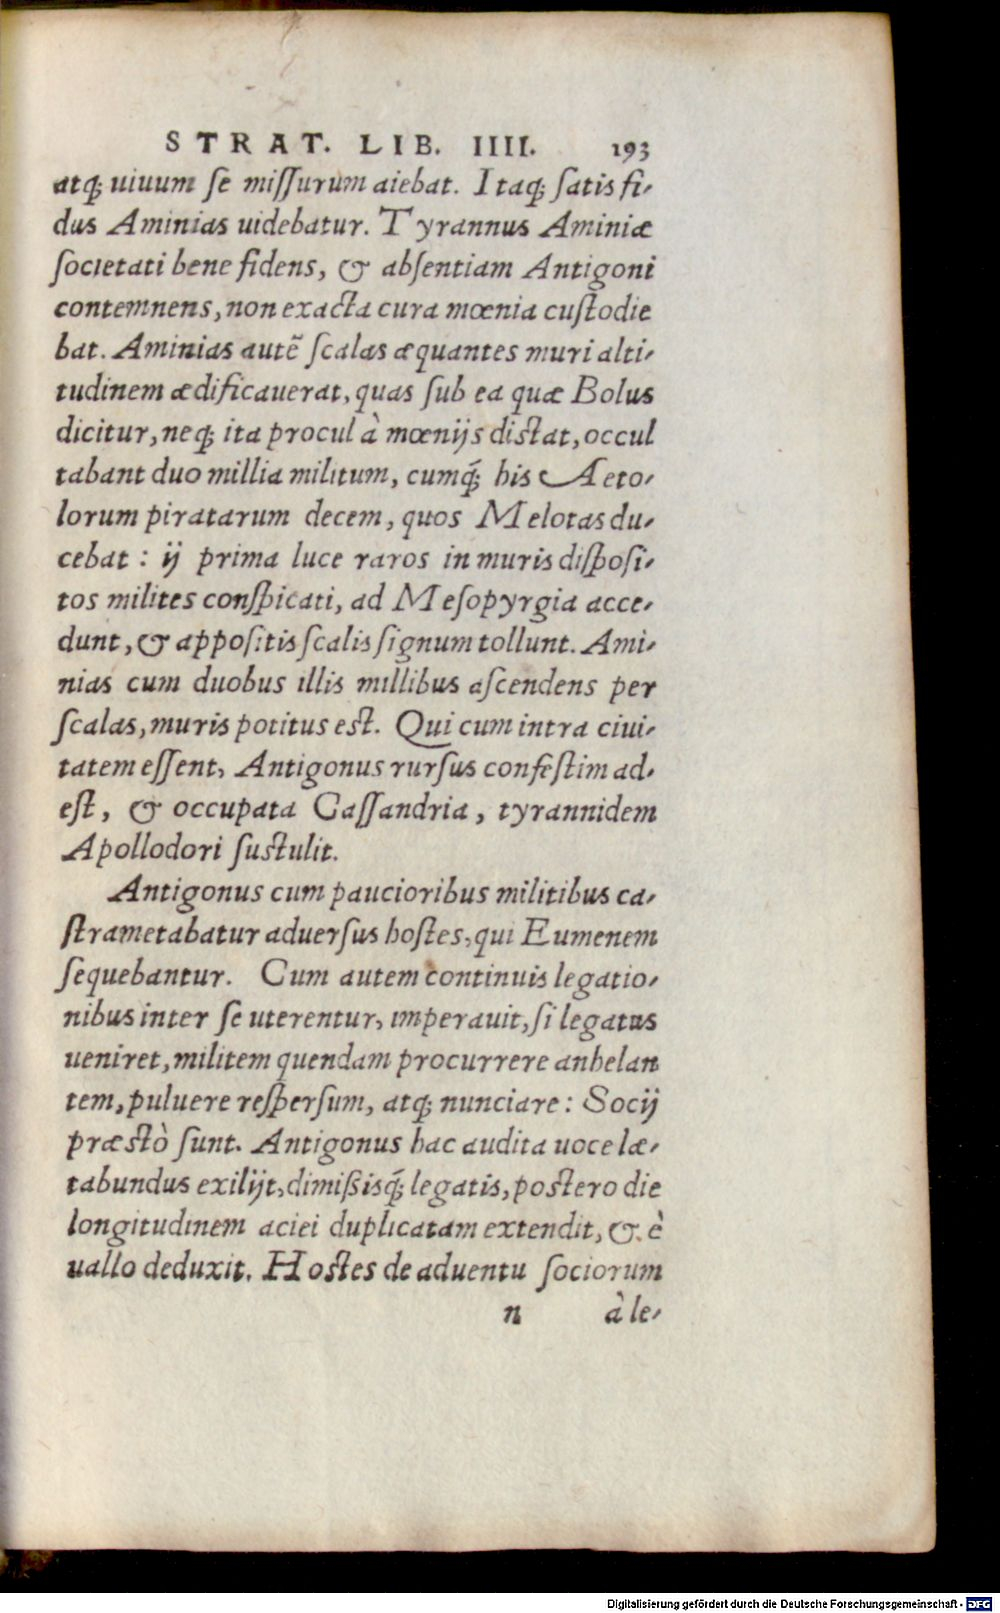 STRAT. LIB. IIII. 193
atq; uiuum se missurum aiebat. Itaq; satis fi-
dus Aminias uidebatur. Tyrannus Aminiæ
societati bene fidens, & absentiam Antigoni
contemnens, non exacta cura mœnia custodie
bat. Aminias autẽ scalas æquantes muri alti-
tudinem ædificauerat, quas sub ea quæ Bolus
dicitur, neq; ita procul à mœnijs distat, occul
tabant duo millia militum, cumq́; his Aeto-
lorum piratarum decem, quos Melotas du-
cebat: ij prima luce raros in muris disposi-
tos milites conspicati, ad Mesopyrgia acce-
dunt, & appositis scalis signum tollunt. Ami-
nias cum duobus illis millibus ascendens per
scalas, muris potitus est. Qui cum intra ciui-
tatem essent, Antigonus rursus confestim ad-
est, & occupata Cassandria, tyrannidem
Apollodori sustulit.
Antigonus cum paucioribus militibus ca-
strametabatur aduersus hostes, qui Eumenem
sequebantur. Cum autem continuis legatio-
nibus inter se uterentur, imperauit, si legatus
ueniret, militem quendam procurrere anhelan
tem, puluere respersum, atq; nunciare: Socij
præstò sunt. Antigonus hac audita uoce læ-
tabundus exilijt, dimissisq́; legatis, postero die
longitudinem aciei duplicatam extendit, & è
uallo deduxit. Hostes de aduentu sociorum
n à le-
Digitalisierung gefördert durch die Deutsche Forschungsgemeinschaft - DFG